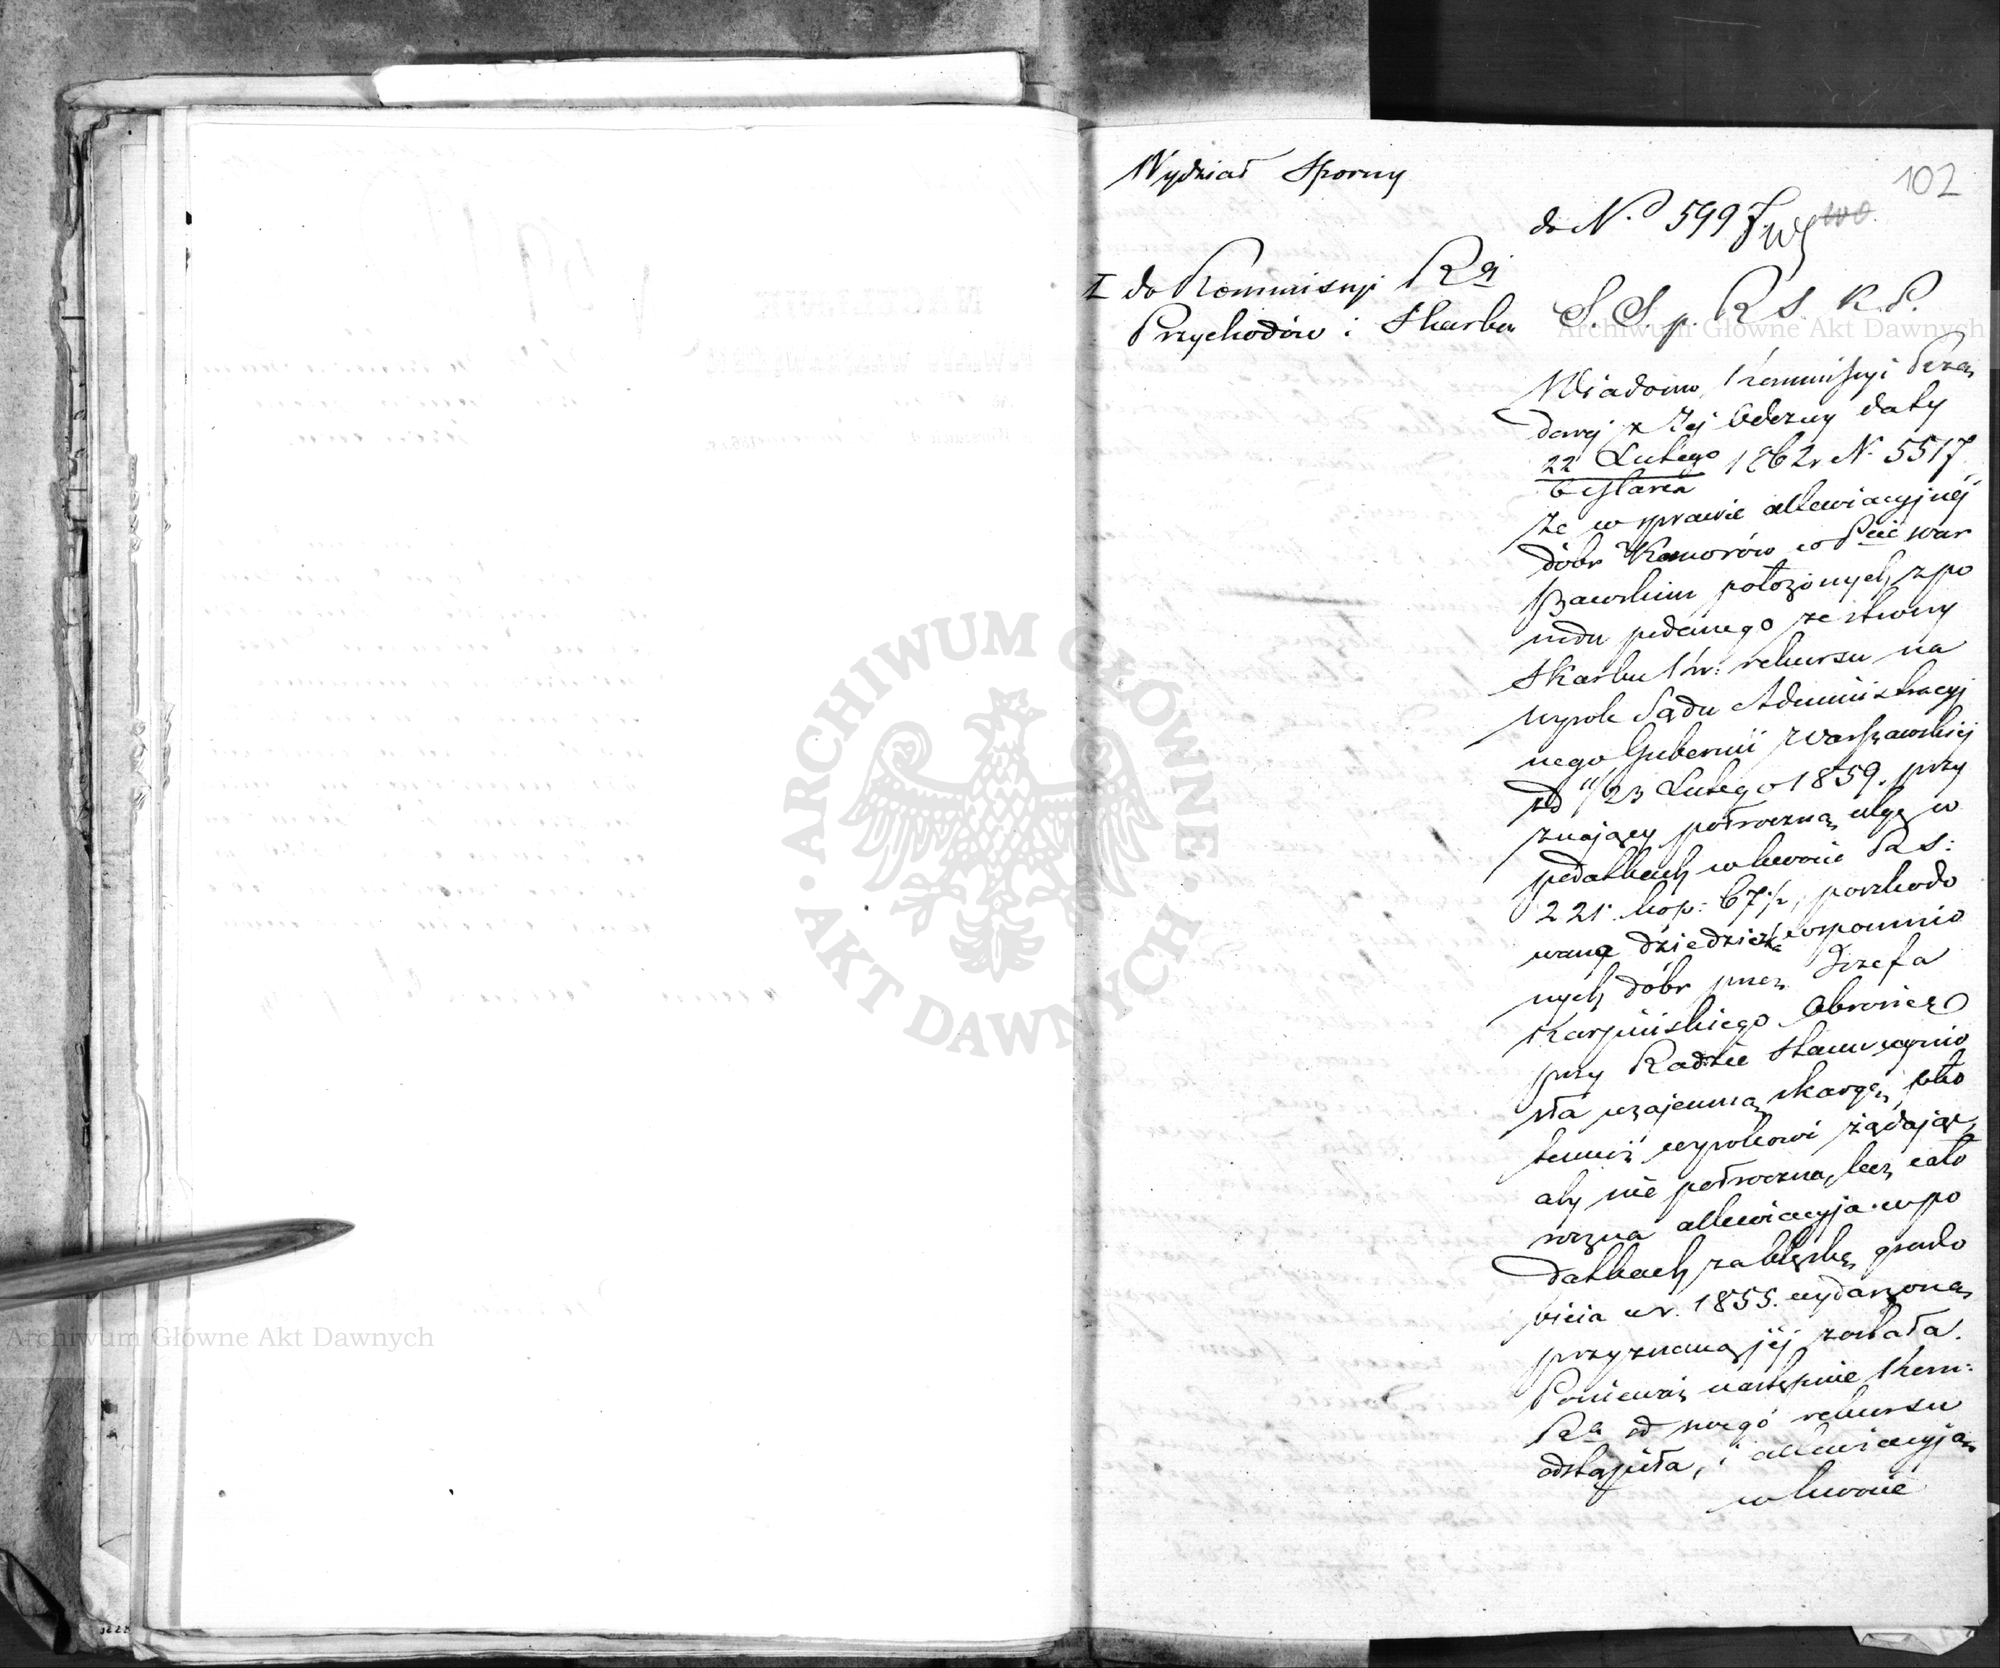 Wydział Sporny
102
do N.o 5997
I do Kommissyi R.ej
Przychodów i Skarbu
S. S. p. K S. K. P.
Wiadomo Kommissyi Rzą
dowej z Jej Odezwy daty
22 Lutego 1862 r. N. 5517
6 Marca
że w sprawie allewiacyjnéj
dóbr Komorów w Pcie War
szawskim położonych, z po
wodu podanego ze strony
Skarbu Kr: rekursu na
wyrok Sądu Administracyj
nego Gubernii Warszawskiej
od 11/23 Lutego 1859. przy
znający półroczną ulgę w
podatkach w kwocie Rs:
221. kop: 67½, poszkodo
waną dziedziczka wspomnio
nych dóbr przez Józefa
Karpińskiego Obrońcę
przy Radzie Stanu wynio
sła wzajemną skargę, prze
temuż wyrokowi żądając,
aby nie półroczna, lecz cało
roczna allewiacyja w po
datkach za klęskę grado
bicia w r. 1855. wydarzoną
przyznaną jéj została.
Ponieważ następnie Kom:
Ra od swego rekursu
odstąpiła, i allewiacyją
w kwocie
Archiwum Główne Akt Dawnych
ARCHIWUM GŁÓWNE
AKT DAWNYCH
Archiwum Główne Akt Dawnych